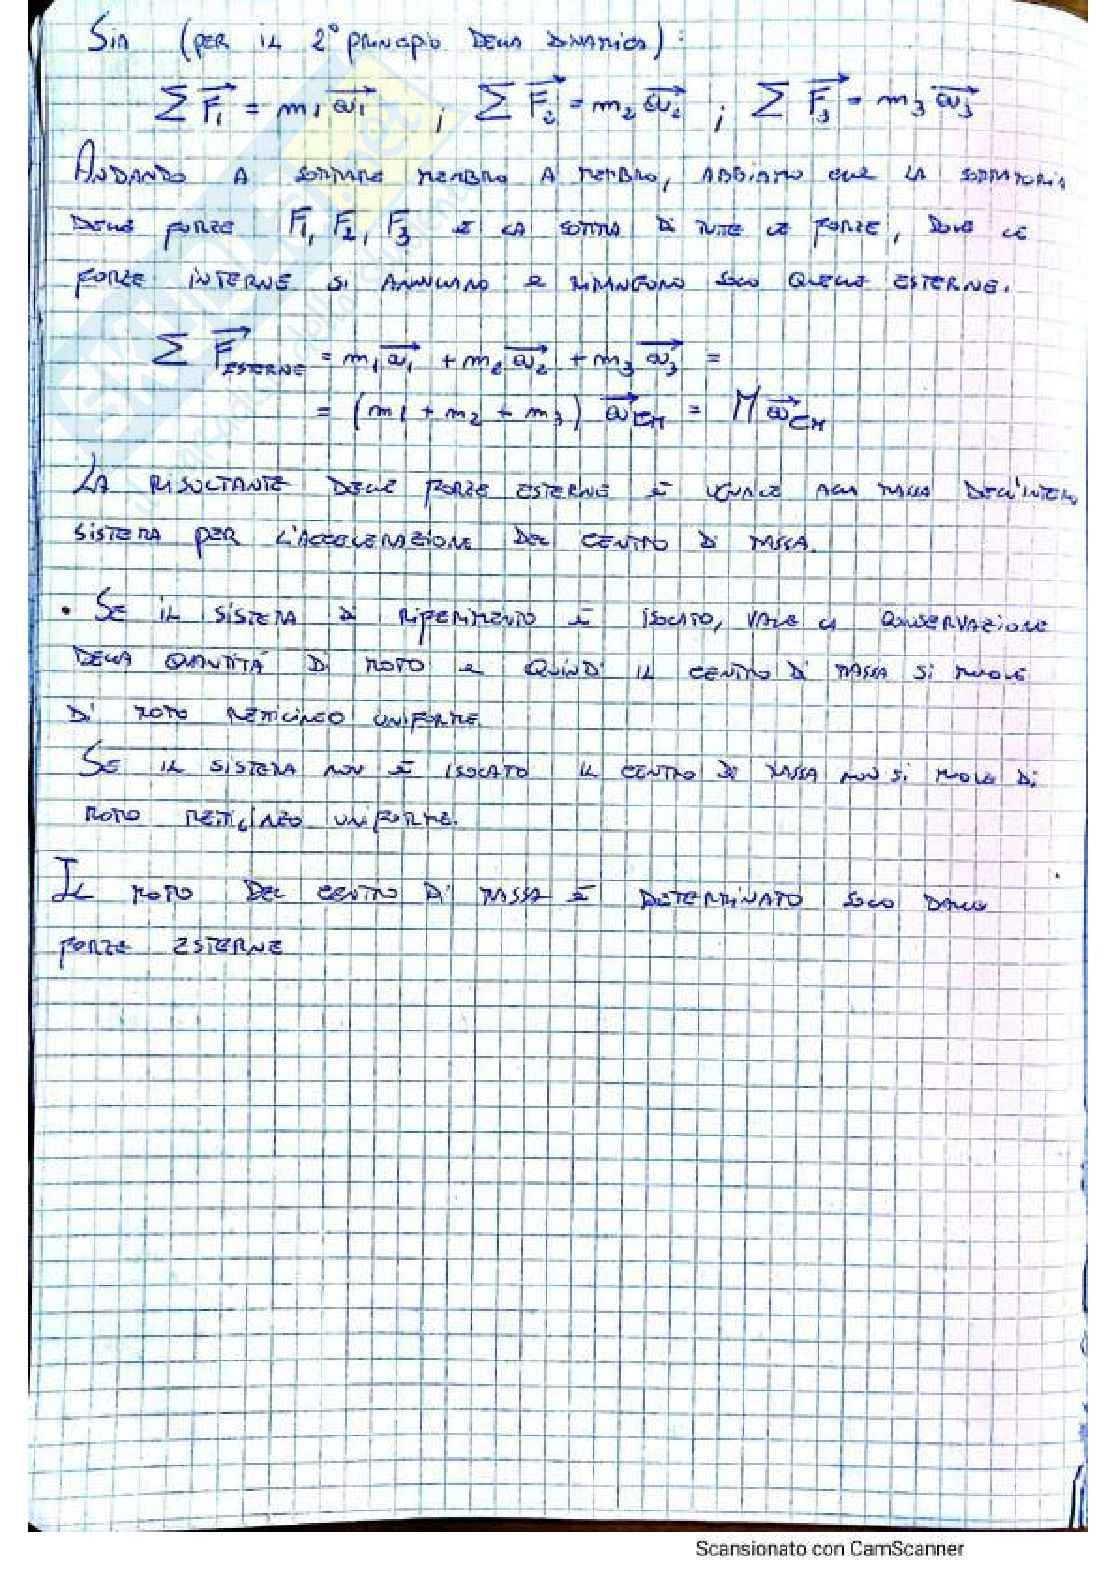 Sia (PER IL 2° principio DELLA DINAMICA):
∑ F₁ = m₁ a₁ ; ∑ F₂ = m₂ a₂ ; ∑ F₃ = m₃ a₃
ANDANDO A SOMMARE MEMBRO A MEMBRO, ABBIAMO CHE LA SOMMATORIA
DELLE FORZE F₁, F₂, F₃ È LA SOMMA DI TUTTE LE FORZE, DOVE LE
FORZE INTERNE SI ANNULLANO E RIMANGONO SOLO QUELLE ESTERNE.
∑ F ESTERNE = m₁ a₁ + m₂ a₂ + m₃ a₃ =
= (m1 + m₂ + m₃) a CM = M a CM
LA RISULTANTE DELLE FORZE ESTERNE È UGUALE ALLA MASSA DELL'INTERO
SISTEMA PER L'ACCELERAZIONE DEL CENTRO DI MASSA.
• SE IL SISTEMA DI RIFERIMENTO È ISOLATO, VALE LA CONSERVAZIONE
DELLA QUANTITÀ DI MOTO E QUINDI IL CENTRO DI MASSA SI MUOVE
DI MOTO RETTILINEO UNIFORME.
SE IL SISTEMA NON È ISOLATO IL CENTRO DI MASSA NON SI MUOVE DI
MOTO RETTILINEO UNIFORME.
IL MOTO DEL CENTRO DI MASSA È DETERMINATO SOLO DALLE
FORZE ESTERNE
Scansionato con CamScanner